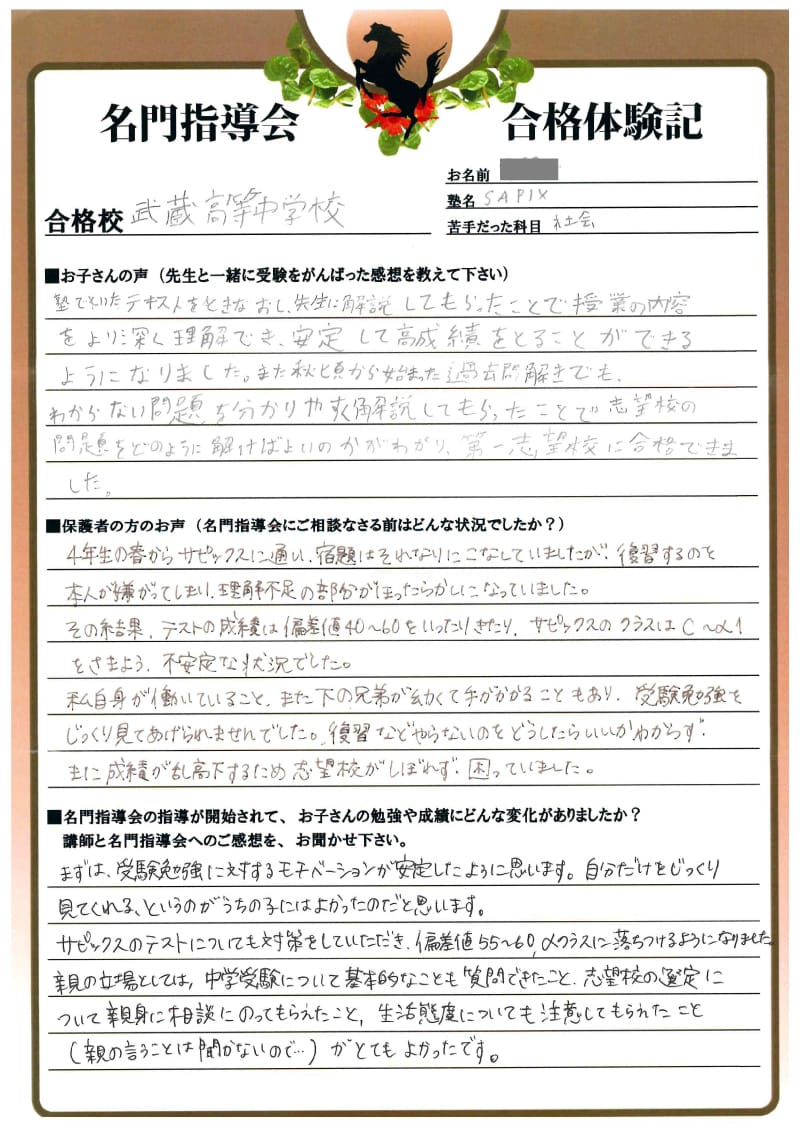 名門指導会
合格体験記
お名前
塾名 SAPIX
合格校 武蔵高等中学校
苦手だった科目 社会
■お子さんの声（先生と一緒に受験をがんばった感想を教えて下さい）
塾でといたテキストをときなおし、先生に解説してもらったことで授業の内容
をより深く理解でき、安定して高成績をとることができる
ようになりました。また秋と頃から始まった過去問解きでも、
わからない問題を分かりやすく解説してもらったことで志望校の
問題をどのように解けばよいのかがわかり、第一志望校に合格できま
した。
■保護者の方のお声（名門指導会にご相談なさる前はどんな状況でしたか？）
4年生の春からサピックスに通い、宿題はそれなりにこなしていましたが、復習するのを
本人が嫌がってしまい、理解不足の部分がほったらかしになっていました。
その結果、テストの成績は偏差値40〜60をいったりきたり、サピックスのクラスはC〜α1
をさまよう、不安定な状況でした。
私自身が働いていること、また下の兄弟が幼くて手がかかることもあり、受験勉強を
じっくり見てあげられませんでした。復習などやらないのをどうしたらいいかわからず、
また成績が乱高下するため志望校がしぼれず、困っていました。
■名門指導会の指導が開始されて、お子さんの勉強や成績にどんな変化がありましたか？
講師と名門指導会へのご感想を、お聞かせ下さい。
まずは、受験勉強に対するモチベーションが安定したように思います。自分だけをじっくり
見てくれる、というのがうちの子にはよかったのだと思います。
サピックスのテストについても対策をしていただき、偏差値55〜60、αクラスに落ちつけるようになりました。
親の立場としては、中学受験について基本的なことも質問できたこと、志望校の選定に
ついて親身に相談にのってもらえたこと、生活態度についても注意してもらえたこと
（親の言うことは聞かないので…）がとてもよかったです。